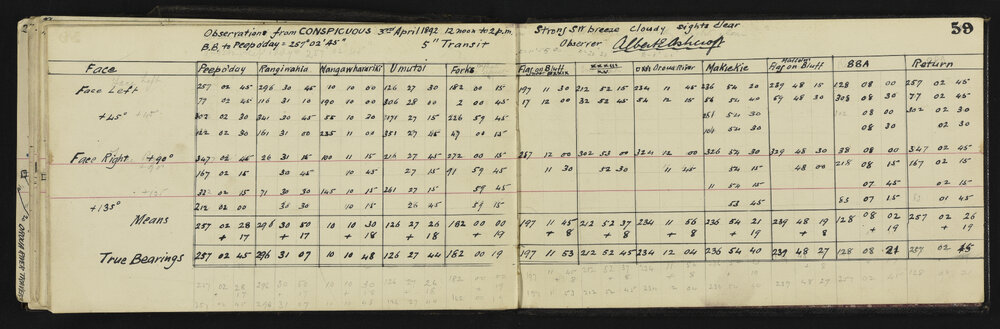 Observations from CONSPICUOUS 3rd April 1892 12 noon to 2 p.m. Strong SW breeze Cloudy sights clear 59
B.B. to Peep o'day = 257° 02' 45" 5" Transit Observer Albert E Ashcroft
Face Peep o'day Ranginahia Mangawharariki Umutoi Forks Flag on Bluff XXXIII Oroua River Makiekie Flag on Bluff BBA Return
Face Left 257 02 45 296 30 45 10 10 00 126 27 30 182 00 15 197 11 30 212 52 15 234 11 45 236 54 20 239 48 15 128 08 00 257 02 45
77 02 45 116 31 10 190 10 00 306 28 00 2 00 45 17 12 00 32 52 45 54 12 15 56 54 40 59 48 30 308 08 30 77 02 45
+45° 302 02 30 341 30 45 55 10 30 171 27 15 226 59 45 281 54 30 08 00 302 02 30
122 02 30 161 31 00 235 11 00 351 27 45 47 00 15 101 54 30 08 30 02 30
Face Right +90° 347 02 45 26 31 15 100 11 15 216 27 45 272 00 15 287 12 00 302 53 00 324 12 00 326 54 30 329 48 30 38 08 00 347 02 45
167 02 15 30 45 10 45 27 15 91 59 45 11 30 52 30 11 45 54 15 48 00 218 08 15 167 02 15
32 02 15 71 30 30 145 10 15 261 27 15 59 45 11 54 15 07 45 02 15
+135° 212 02 00 30 30 10 15 26 45 59 15 53 45 83 07 15 01 45
Means 257 02 28 296 30 50 10 10 30 126 27 26 182 00 00 197 11 45 212 52 37 234 11 56 236 54 21 239 48 19 128 08 02 257 02 26
+ 17 + 17 + 18 + 18 + 19 + 8 + 8 + 8 + 19 + 8 + 19 + 19
True Bearings 257 02 45 296 31 07 10 10 48 126 27 44 182 00 19 197 11 53 212 52 45 234 12 04 236 54 40 239 48 27 128 08 21 257 02 45